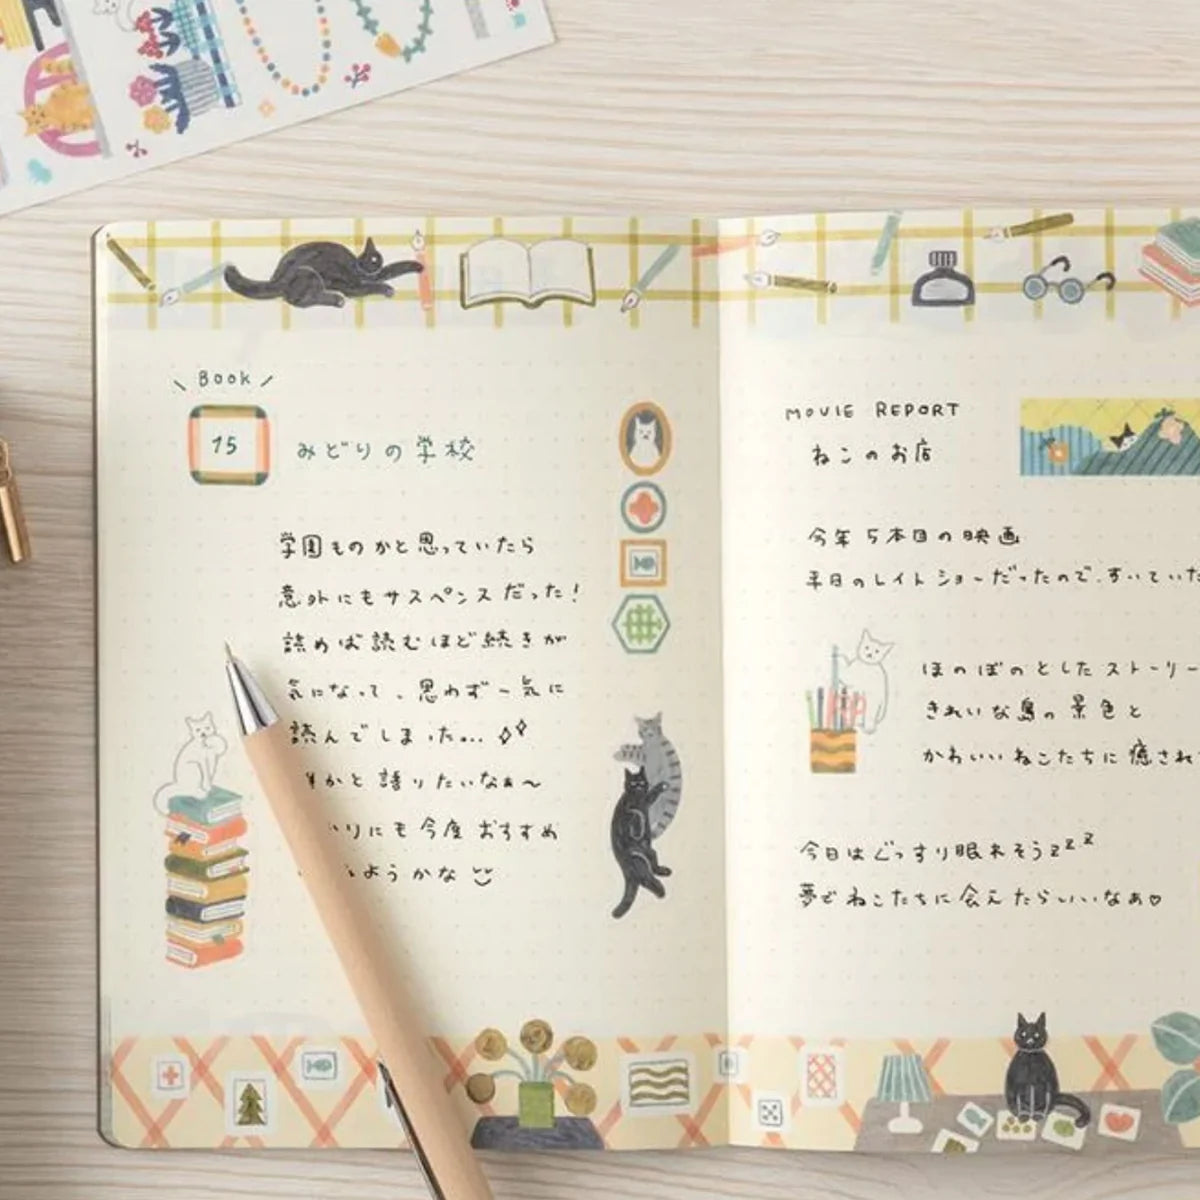 Book
15
みどりの学校
学園ものかと思っていたら
意外にもサスペンスだった!
読めば読むほど続きが
気になって、思わず一気に
読んでしまった...
かと語りたいなぁ〜
りにも今度おすすめ
ようかな
MOVIE REPORT
ねこのお店
今年5本目の映画
平日のレイトショーだったので、すいていた
ほのぼのとしたストーリー
きれいな島の景色と
かわいいねこたちに癒され
今日はぐっすり眠れそうzzz
夢でねこたちに会えたらいいなぁ♡